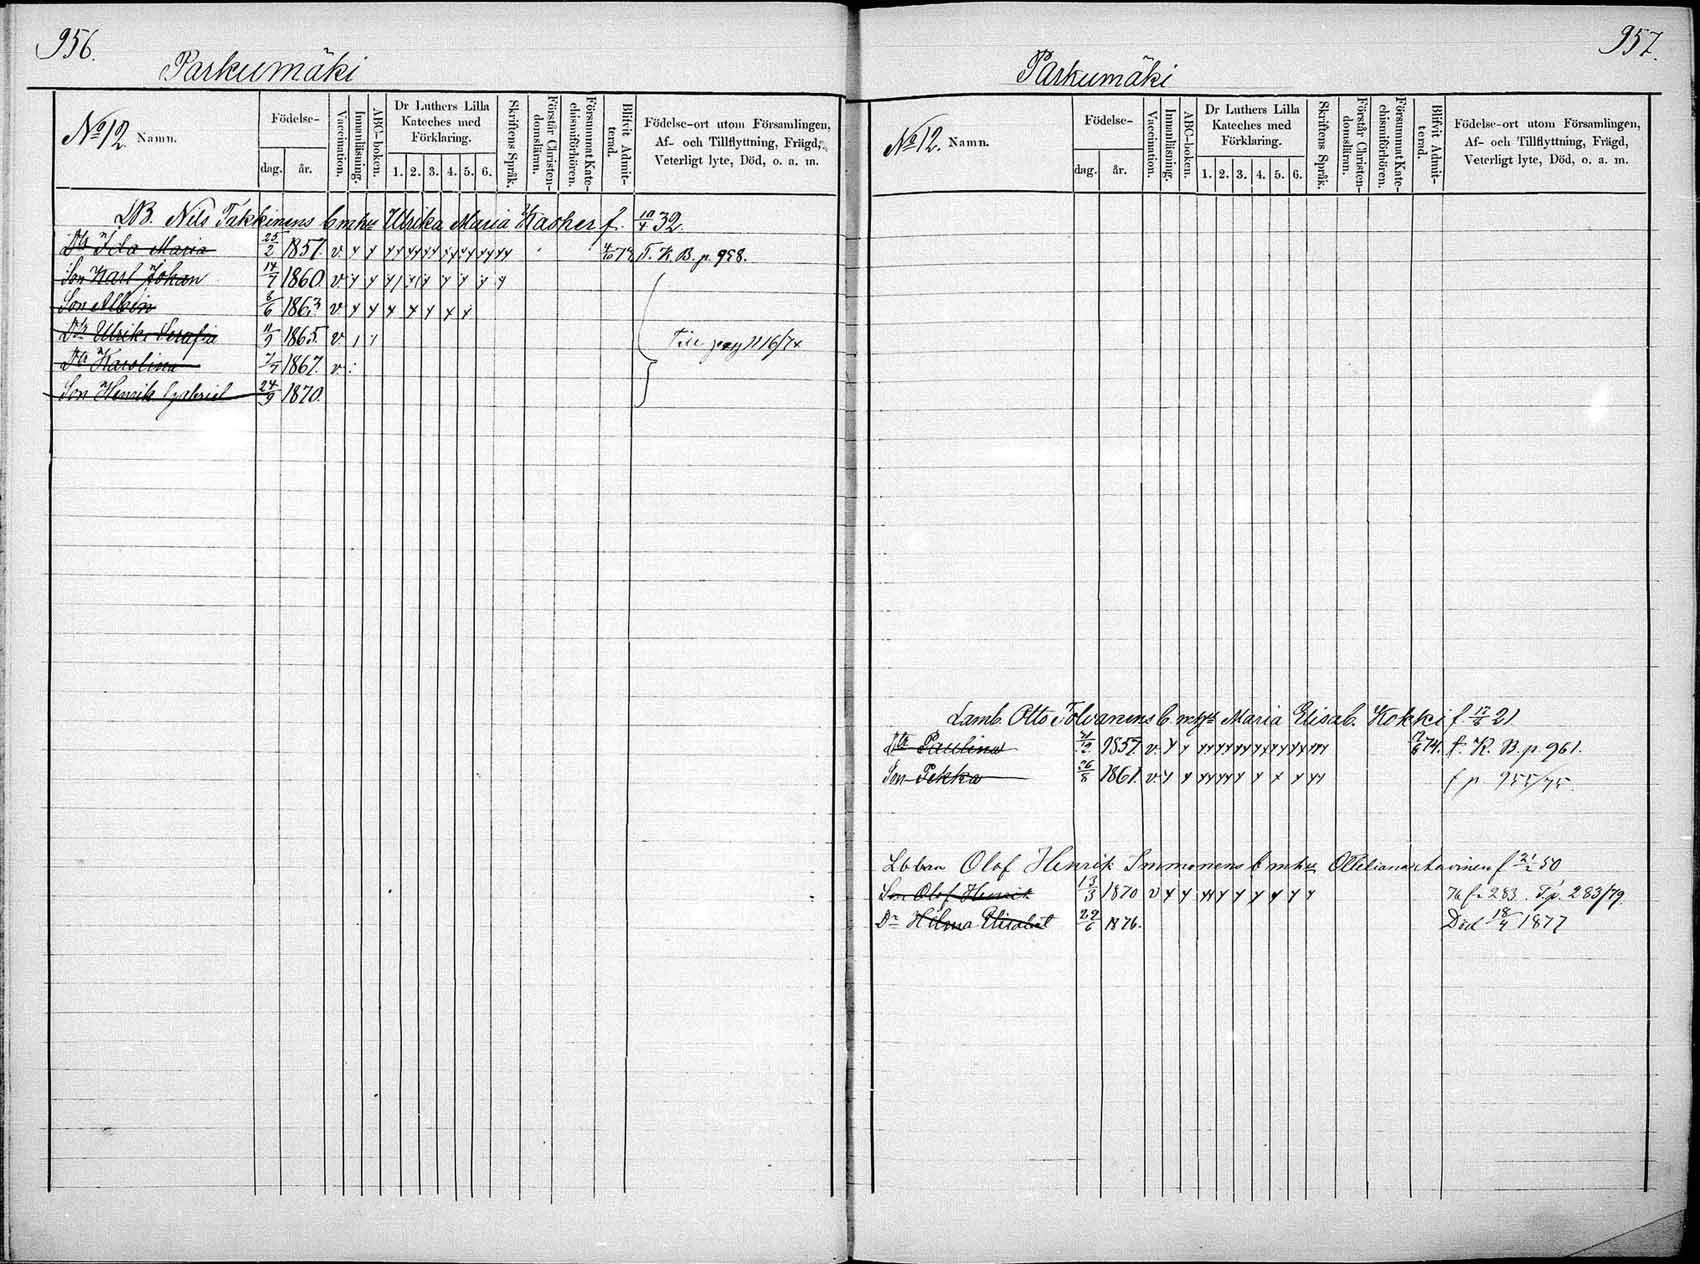 956.
Parkumäki
No 12. Namn.
Födelse-
dag. år.
Vaccination.
Innanläsning.
ABC-boken.
Dr Luthers Lilla Kateches med Förklaring.
1. 2. 3. 4. 5. 6.
Skriftens Språk.
Förstår Christendomsläran.
Försummat Katechismiförhören.
Blifvit Admitterad.
Födelse-ort utom Församlingen, Af- och Tillflyttning, Frägd, Veterligt lyte, Död, o. a. m.
Nils Takkinens Ulrika Maria f. 10/4 32.
Dr Ida Maria 25/2 1857 v T. K. B. p. 958.
Son Karl Johan 14/7 1860. v
Son Albin 6/6 1863 v
Dr Ulrika Serafia 1865. v
Dr Karolina 1867. v
Till pag 1116/7
Son Henrik Gabriel 24/9 1870.
957.
Parkumäki
No 12. Namn.
Födelse-
dag. år.
Vaccination.
Innanläsning.
ABC-boken.
Dr Luthers Lilla Kateches med Förklaring.
1. 2. 3. 4. 5. 6.
Skriftens Språk.
Förstår Christendomsläran.
Försummat Katechismiförhören.
Blifvit Admitterad.
Födelse-ort utom Församlingen, Af- och Tillflyttning, Frägd, Veterligt lyte, Död, o. a. m.
Lamb. Otto Tolvanens Maria Elisab. Kokki f. 21
Dr Paulina 1857 v 74. t. K. B. p. 961.
Son Pekka 26/8 1861. v p 955/75.
Olof Henrik Immonens f 50
Son Olof Henrik 13/3 1870 v 283. T.p. 283/79
Dr Hilma Elisabet 22/6 1876. Död 18/4 1877